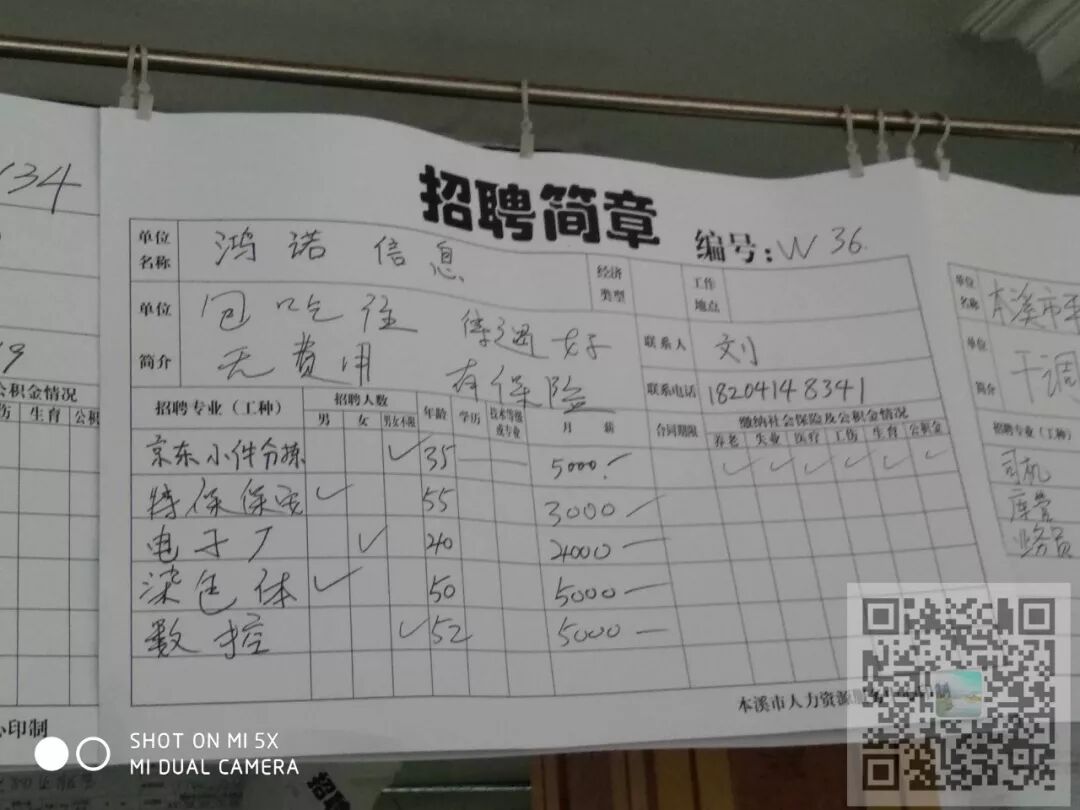 134
招聘简章
编号: W 36.
单位名称 鸿诺信息 经济类型 工作地点
单位简介 包吃住 待遇好 联系人 刘
无费用 有保险 联系电话 18204148341
招聘专业（工种） 招聘人数 年龄 学历 技术等级或专业 月薪 合同期限 缴纳社会保险及公积金情况
男 女 男女不限 养老 失业 医疗 工伤 生育 公积金
京东小件分拣 ✓ 35 — — 5000 ✓ ✓ ✓ ✓ ✓ ✓
特保保安 ✓ 55 3000 —
电子厂 ✓ 40 4000 —
染色体 ✓ 50 5000 —
数控 ✓ 52 5000 —
本溪市人力资源
公积金情况
伤 生育 公积
心印制
单位名称 本溪市
单位简介 干调
招聘专业（工种）
司机
库管
业务员
SHOT ON MI 5X
MI DUAL CAMERA
招聘